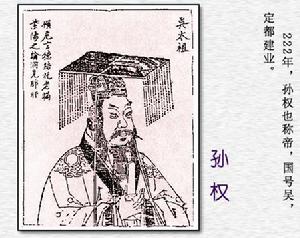 222年，孙权也称帝，国号吴，
定都建业。
孙权
吳太祖